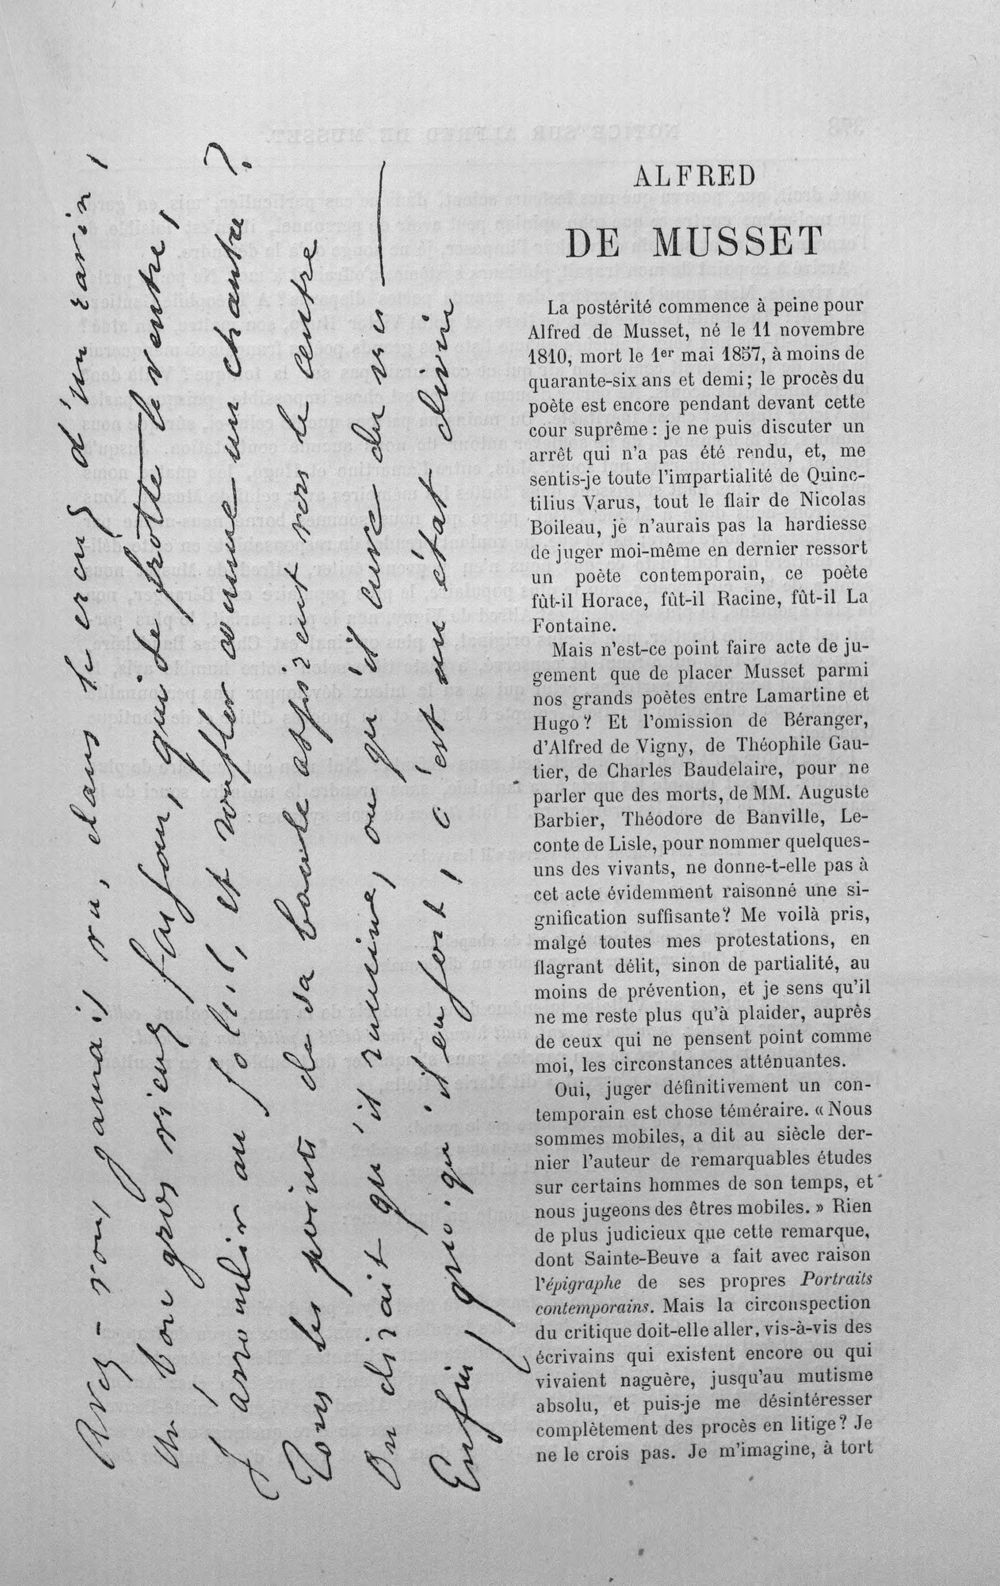 Avez-vous jamais vu, dans le creux d'un ravin,
Un bon gros vieux faisan, qui se frotte le ventre,
S'arrondir au soleil, et ronfler comme un chantre ?
Tous les points de sa boule aspirent vers le centre
On dirait qu'il rumine, ou qu'il cuve du vin —
Enfin, quoi qu'il en soit, c'est un état divin
ALFRED
DE MUSSET
La postérité commence à peine pour
Alfred de Musset, né le 11 novembre
1810, mort le 1er mai 1857, à moins de
quarante-six ans et demi; le procès du
poète est encore pendant devant cette
cour suprême : je ne puis discuter un
arrêt qui n'a pas été rendu, et, me
sentis-je toute l'impartialité de Quinc-
tilius Varus, tout le flair de Nicolas
Boileau, je n'aurais pas la hardiesse
de juger moi-même en dernier ressort
un poète contemporain, ce poète
fût-il Horace, fût-il Racine, fût-il La
Fontaine.
Mais n'est-ce point faire acte de ju-
gement que de placer Musset parmi
nos grands poètes entre Lamartine et
Hugo ? Et l'omission de Béranger,
d'Alfred de Vigny, de Théophile Gau-
tier, de Charles Baudelaire, pour ne
parler que des morts, de MM. Auguste
Barbier, Théodore de Banville, Le-
conte de Lisle, pour nommer quelques-
uns des vivants, ne donne-t-elle pas à
cet acte évidemment raisonné une si-
gnification suffisante ? Me voilà pris,
malgé toutes mes protestations, en
flagrant délit, sinon de partialité, au
moins de prévention, et je sens qu'il
ne me reste plus qu'à plaider, auprès
de ceux qui ne pensent point comme
moi, les circonstances atténuantes.
Oui, juger définitivement un con-
temporain est chose téméraire. « Nous
sommes mobiles, a dit au siècle der-
nier l'auteur de remarquables études
sur certains hommes de son temps, et
nous jugeons des êtres mobiles. » Rien
de plus judicieux que cette remarque,
dont Sainte-Beuve a fait avec raison
l'épigraphe de ses propres Portraits
contemporains. Mais la circonspection
du critique doit-elle aller, vis-à-vis des
écrivains qui existent encore ou qui
vivaient naguère, jusqu'au mutisme
absolu, et puis-je me désintéresser
complètement des procès en litige ? Je
ne le crois pas. Je m'imagine, à tort